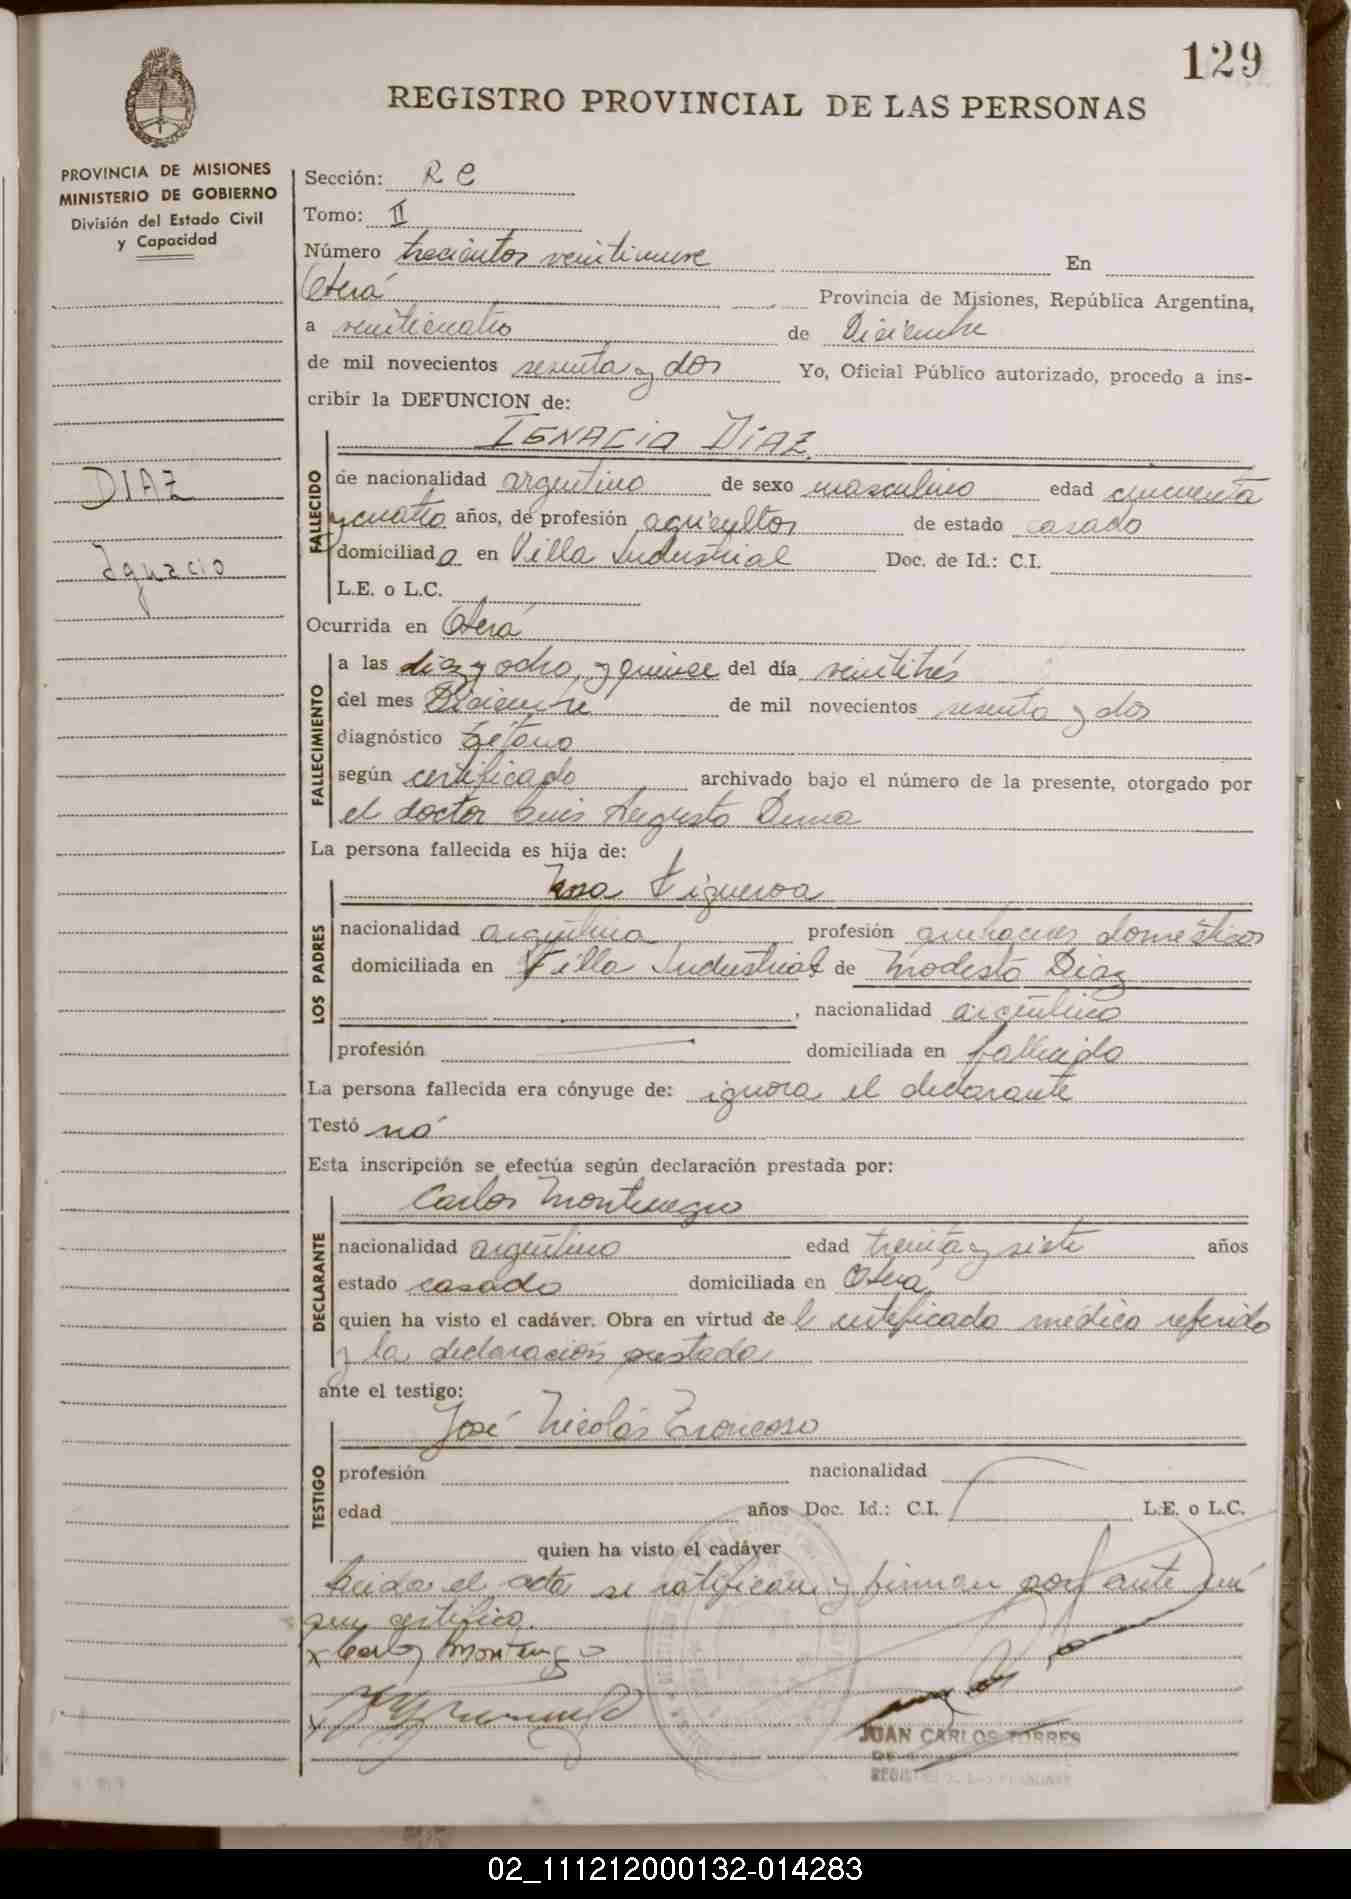 129
REGISTRO PROVINCIAL DE LAS PERSONAS
PROVINCIA DE MISIONES
MINISTERIO DE GOBIERNO
División del Estado Civil
y Capacidad
DIAZ
Ignacio
Sección: R C
Tomo: II
Número trecientos veintinueve En
Oberá Provincia de Misiones, República Argentina,
a veinticuatro de Diciembre
de mil novecientos sesenta y dos Yo, Oficial Público autorizado, procedo a ins-
cribir la DEFUNCION de:
IGNACIO DIAZ
FALLECIDO
de nacionalidad argentino de sexo masculino edad cincuenta
y cuatro años, de profesión agricultor de estado casado
domiciliado en Villa Industrial Doc. de Id.: C.I.
L.E. o L.C.
Ocurrida en Oberá
FALLECIMIENTO
a las diez y ocho y quince del día veintitrés
del mes Diciembre de mil novecientos sesenta y dos
diagnóstico tétano
según certificado archivado bajo el número de la presente, otorgado por
el doctor Luis Augusto
La persona fallecida es hija de:
Figueroa
LOS PADRES
nacionalidad argentina profesión quehaceres domésticos
domiciliada en Villa Industrial de Modesto Diaz
, nacionalidad argentino
profesión domiciliada en fallecido
La persona fallecida era cónyuge de: ignora el declarante
Testó nó
Esta inscripción se efectúa según declaración prestada por:
Carlos Montenegro
DECLARANTE
nacionalidad argentino edad treinta y siete años
estado casado domiciliada en Oberá
quien ha visto el cadáver. Obra en virtud del certificado médico referido
y la declaración prestada
ante el testigo:
José Nicolás Troncoso
TESTIGO
profesión nacionalidad
edad años Doc. Id.: C.I. L.E. o L.C.
quien ha visto el cadáver
Leida el acta se ratifican y firman por ante mí
que certifico.
x Carlos Montenegro
JUAN CARLOS TORRES
02_111212000132-014283